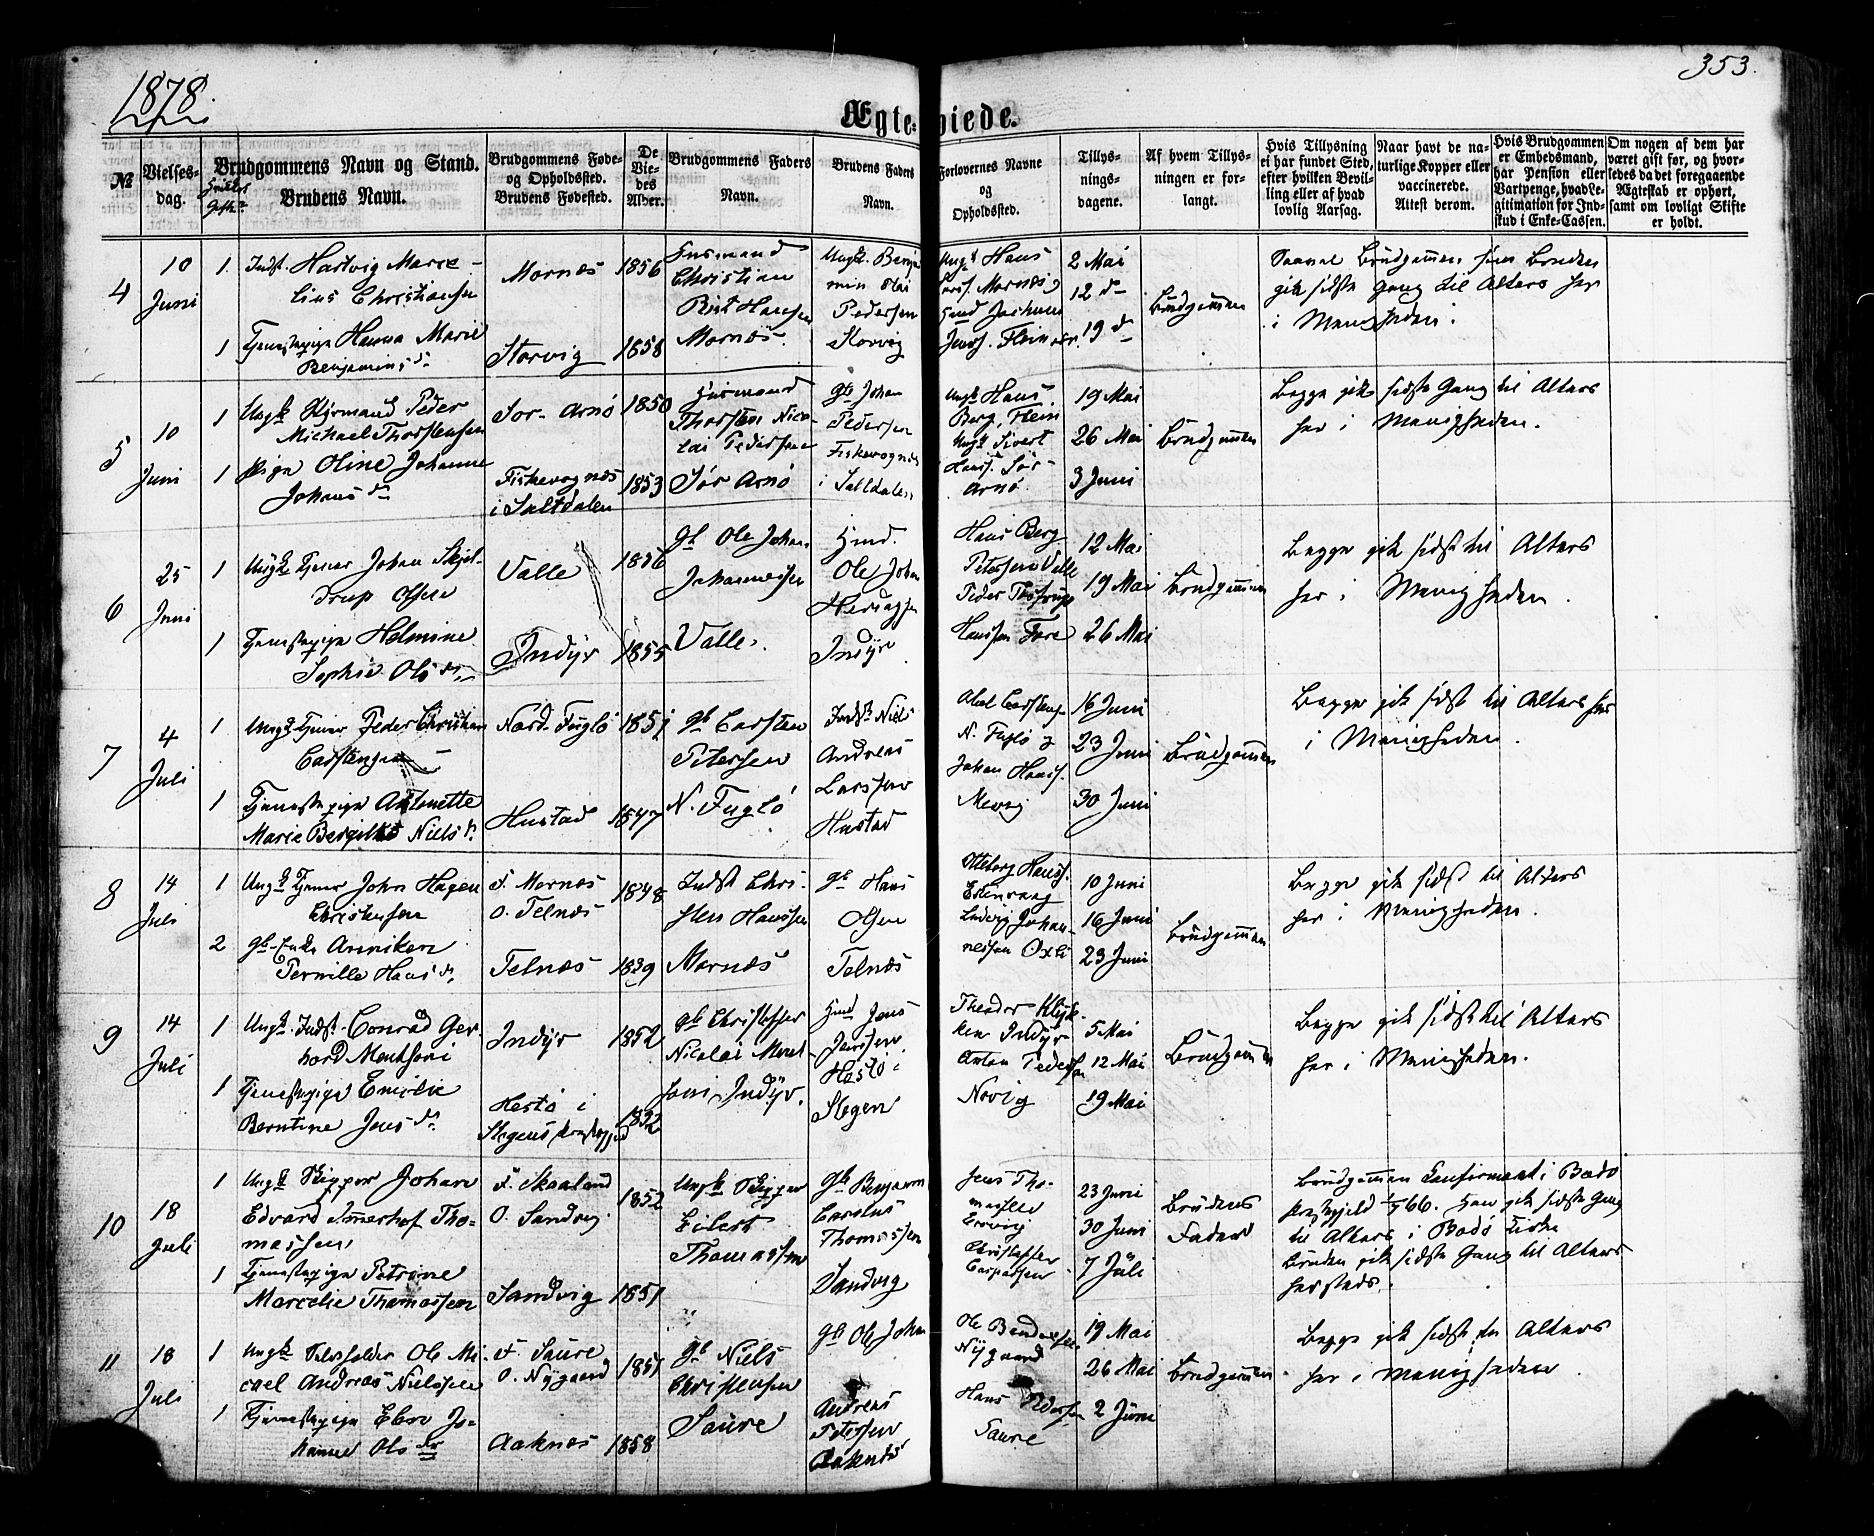 1878.
353.
Ægteviede.
№
Vielsesdag.
Brudgommens Navn og Stand.
Brudens Navn.
Brudgommens Føde- og Opholdssted.
Brudens Fødested.
De Viedes Alder.
Brudgommens Faders Navn.
Brudens Faders Navn.
Forlovernes Navne og Opholdssted.
Tillysningsdagene.
Af hvem Tillysningen er forlangt.
Hvis Tillysning ei har fundet Sted, efter hvilken Bevilling eller af hvad lovlig Aarsag.
Naar havt de naturlige Kopper eller vaccinerede. Attest derom.
Hvis Brudgommen er Embedsmand, har Pension eller Vartpenge, hvad Legitimation for Indskud i Enke-Cassen.
Om nogen af dem har været gift for, og hvorledes da det foregaaende Ægteskab er ophørt, samt om lovligt Skifte er holdt.
4
10 Juni
1 Indst. Hartvig Marce-
lius Christiansen
1 Tjenestepige Hanna Marie
Benjamins d.
Mornæs
Storvig
1856
1858
Husmand
Christian
Hansen
Mornæs.
Ungk. Benja
min Olai
Pedersen
Storvig
Ungk Hans
Larss. Mornæs og
Jenss. Flein
2 Mai
12 d
19 d
Brudgommen
Saavel Brudgommen som Bruden
gik sidste Gang til Alters her
i Menigheden.
5
10 Juni
1 Ungk Peder
Michael Thorstensen
1 Pige Oline Johanne
Johans d
Sør-Arnø
Fiskevognæs
i Saltdalen
1850
1853
Husmand
Thorsten Nico-
lai Pedersen
Sør Arnø
gb Johan
Pedersen
Fiskevognæs
i Saltdalen
Ungk Hans
Berg, Flein
Ungk Sivert
Hanss. Sør-
Arnø.
19 Mai
26 Mai
3 Juni
Brudgommen
Begge gik sidste Gang til Alters
her i Menigheden.
6
25 Juni
1 Ungk Tjener Johan Skjel-
drup Olsen
1 Tjenestepige Helmine
Sophie Ols d.
Valle
Indyr
1855
gb Ole Johan
Johannessen
Valle.
Hmd.
Ole Johan
Indyr
Hans Berg
Petersen Valle
Peder
Hanssen Fore
12 Mai
19 Mai
26 Mai
Brudgommen
Begge gik sidst til Alters
her i Menigheden.
7
4 Juli
1 Ungk Tjener Peder Christian
Carstensen
1 Tjenestepige Antonette
Marie Bergitte Niels d.
Nord. Fuglø
Hustad
1851
1847
gb Carsten
Petersen
N. Fuglø
Indst Niels
Andreas
Larssen
Hustad
N. Fuglø og
Johan Hanss.
Mevig
16 Juni
23 Juni
30 Juni
Brudgommen
Begge gik sidst til Alters her
i Menigheden.
8
14 Juli
1 Ungk Tjener John Hagen
Christensen
2 gb. Enke Anniken
Pernille Hans d.
F. Mornæs
O. Telnæs
Telnæs
1848
1839
Indst Chri-
sten Hanssen
Mornæs
gb Hans
Olsen
Telnæs
Hanss.
Ludvig Johan-
nessen
10 Juni
16 Juni
23 Juni
Brudgommen
Begge gik sidst til Alters
her i Menigheden.
9
14 Juli
1 Ungk. Indst. Conrad Ger-
hard Mentzoni
1 Tjenestepige Emilie
Berntine Jens d.
Indyr
Hestø i
Stegens Præstegjeld
1852
1832
gb Christoffer
Nicolai Ment-
zoni, Indyr.
Hmd Jens
Jenssen
Hestø i
Stegen
Theodor
Indyr
Anton Pedersen
Novig
5 Mai
12 Mai
19 Mai
Brudgommen
Begge gik sidst til Alters
her i Menigheden.
10
18 Juli
1 Ungk Skipper Johan
Edvard Immerhof Tho-
massen
1 Tjenestepige Petrine
Marcelie Thomassen
F. Skaaland
O. Sandvig
Sandvig
1852
1851
Ungk Skipper
Eilert
Thomassen
gb Benjamin
Carelius
Thomassen
Sandvig
Jens Tho-
massen
Christoffer
Caspersen
23 Juni
30 Juni
7 Juli
Brudens
Fader
Brudgommen Confirmeret i Bodø
Præstegjeld 66. Han gik sidste Gang
til Alters i Bodø Kirke
Bruden gik sidste Gang til Alters
hersteds.
11
18 Juli
1 Ungk Ole Mi-
cael Andreas Nielssen
1 Tjenestepige Elen Jo-
hanne Ols dr
F. Saure
O. Nygaard
Aaknæs
1851
1858
gb Niels
Christensen
Saure
gb Ole Johan
Andreas
Petersen
Aaknæs
Ole
Nygaard
Hans Pedersen
Saure
19 Mai
26 Mai
2 Juni
Brudgommen
Begge gik sidst til Alters
her i Menigheden